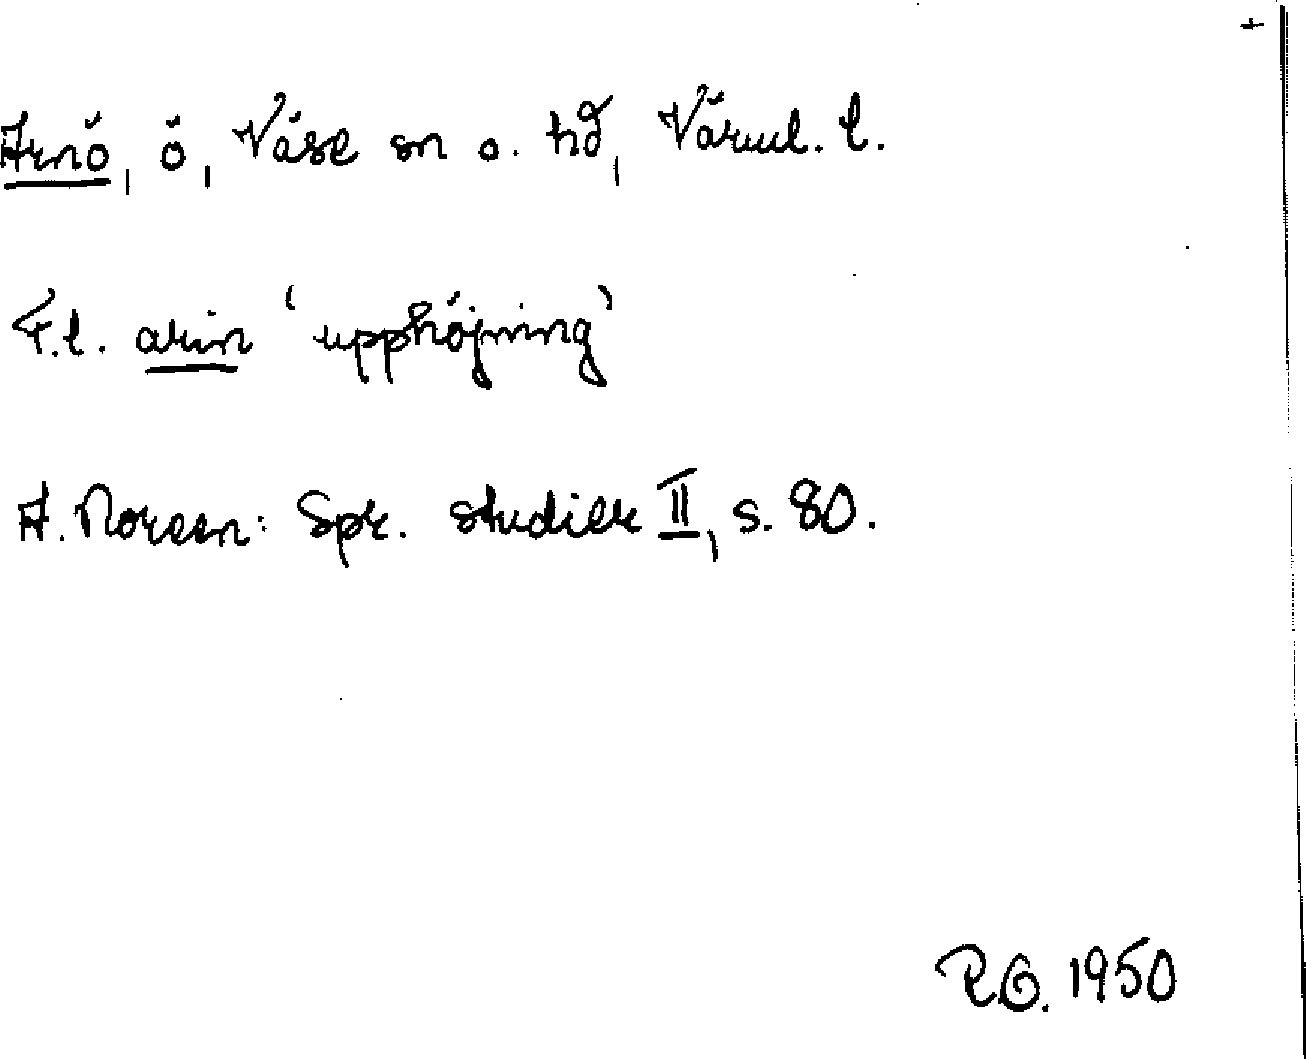 +
Arnö, ö, Väse sn o. hd, Värml. l.
F.l. arin 'upphöjning'
A. Noreen: Spr. studier II, s. 80.
RG. 1950